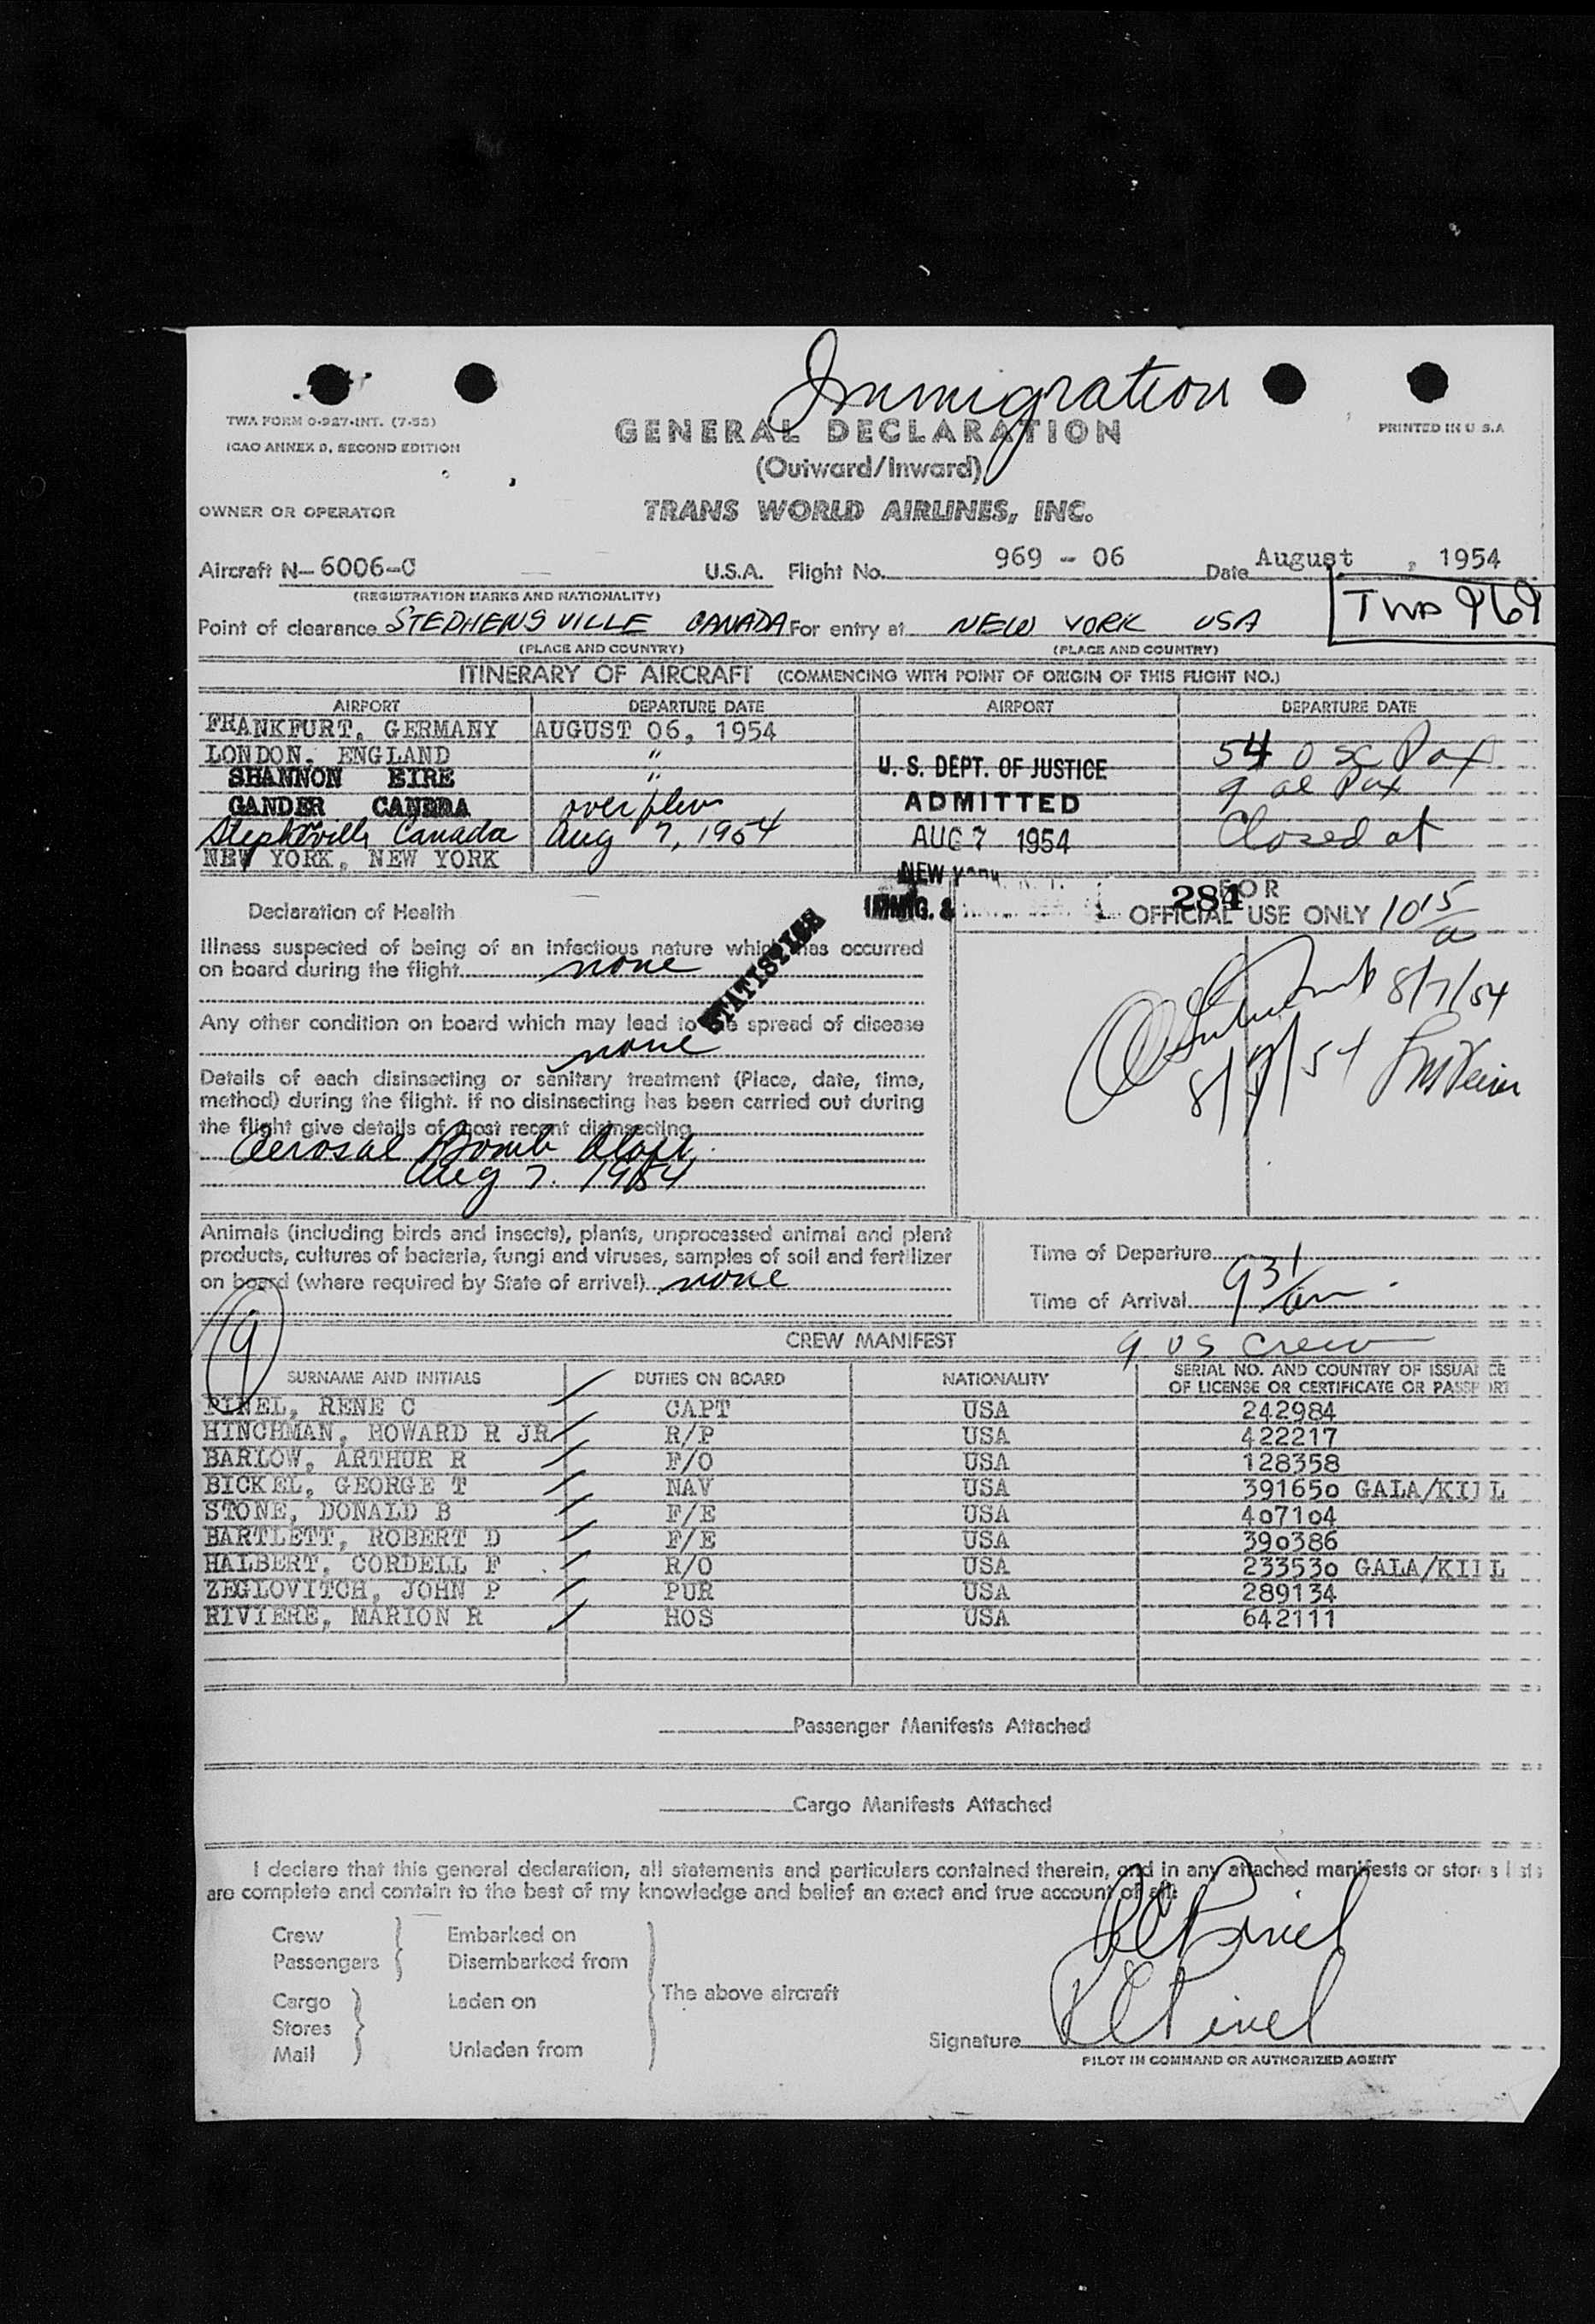 Immigration
TWA FORM O-927-INT. (7-53)
ICAO ANNEX 9, SECOND EDITION
GENERAL DECLARATION
PRINTED IN U.S.A
(Outward/Inward)
OWNER OR OPERATOR
TRANS WORLD AIRLINES, INC.
Aircraft N- 6006-C U.S.A. Flight No. 969 - 06 Date August , 1954
(REGISTRATION MARKS AND NATIONALITY)
TWA 969
Point of clearance STEPHENSVILLE CANADA For entry at NEW YORK USA
(PLACE AND COUNTRY) (PLACE AND COUNTRY)
ITINERARY OF AIRCRAFT (COMMENCING WITH POINT OF ORIGIN OF THIS FLIGHT NO.)
AIRPORT DEPARTURE DATE AIRPORT DEPARTURE DATE
FRANKFURT, GERMANY AUGUST 06, 1954
LONDON, ENGLAND "
SHANNON EIRE "
GANDER CANADA overflew
Stephenville Canada Aug 7, 1954
NEW YORK, NEW YORK
U. S. DEPT. OF JUSTICE
ADMITTED
AUG 7 1954
NEW YORK
IMMIG. &
54 Pax
9 al Pax
Closed at
1015 a
284
FOR
OFFICIAL USE ONLY
STATISTICS
Declaration of Health
Illness suspected of being of an infectious nature which has occurred
on board during the flight none
Any other condition on board which may lead to the spread of disease
none
Details of each disinsecting or sanitary treatment (Place, date, time,
method) during the flight. If no disinsecting has been carried out during
the flight give details of most recent disinsecting
Aerosal Bomb Aloft
Aug 7. 1954
8/7/54
8/7/54
Animals (including birds and insects), plants, unprocessed animal and plant
products, cultures of bacteria, fungi and viruses, samples of soil and fertilizer
on board (where required by State of arrival) none
Time of Departure
Time of Arrival 931 am
9
CREW MANIFEST
9 US Crew
SURNAME AND INITIALS DUTIES ON BOARD NATIONALITY SERIAL NO. AND COUNTRY OF ISSUANCE
OF LICENSE OR CERTIFICATE OR PASSPORT
PINEL, RENE C CAPT USA 242984
HINCHMAN, HOWARD R JR R/P USA 422217
BARLOW, ARTHUR R F/O USA 128358
BICKEL, GEORGE T NAV USA 391650 GALA/KILL
STONE, DONALD B F/E USA 407104
BARTLETT, ROBERT D F/E USA 390386
HALBERT, CORDELL F R/O USA 233530 GALA/KILL
ZEGLOVITCH, JOHN P PUR USA 289134
RIVIERE, MARION R HOS USA 642111
Passenger Manifests Attached
Cargo Manifests Attached
I declare that this general declaration, all statements and particulars contained therein, and in any attached manifests or stores lists
are complete and contain to the best of my knowledge and belief an exact and true account of all:
Crew
Passengers
Embarked on
Disembarked from
Cargo
Stores
Mail
Laden on
Unladen from
The above aircraft
R C Pinel
Signature R C Pinel
PILOT IN COMMAND OR AUTHORIZED AGENT